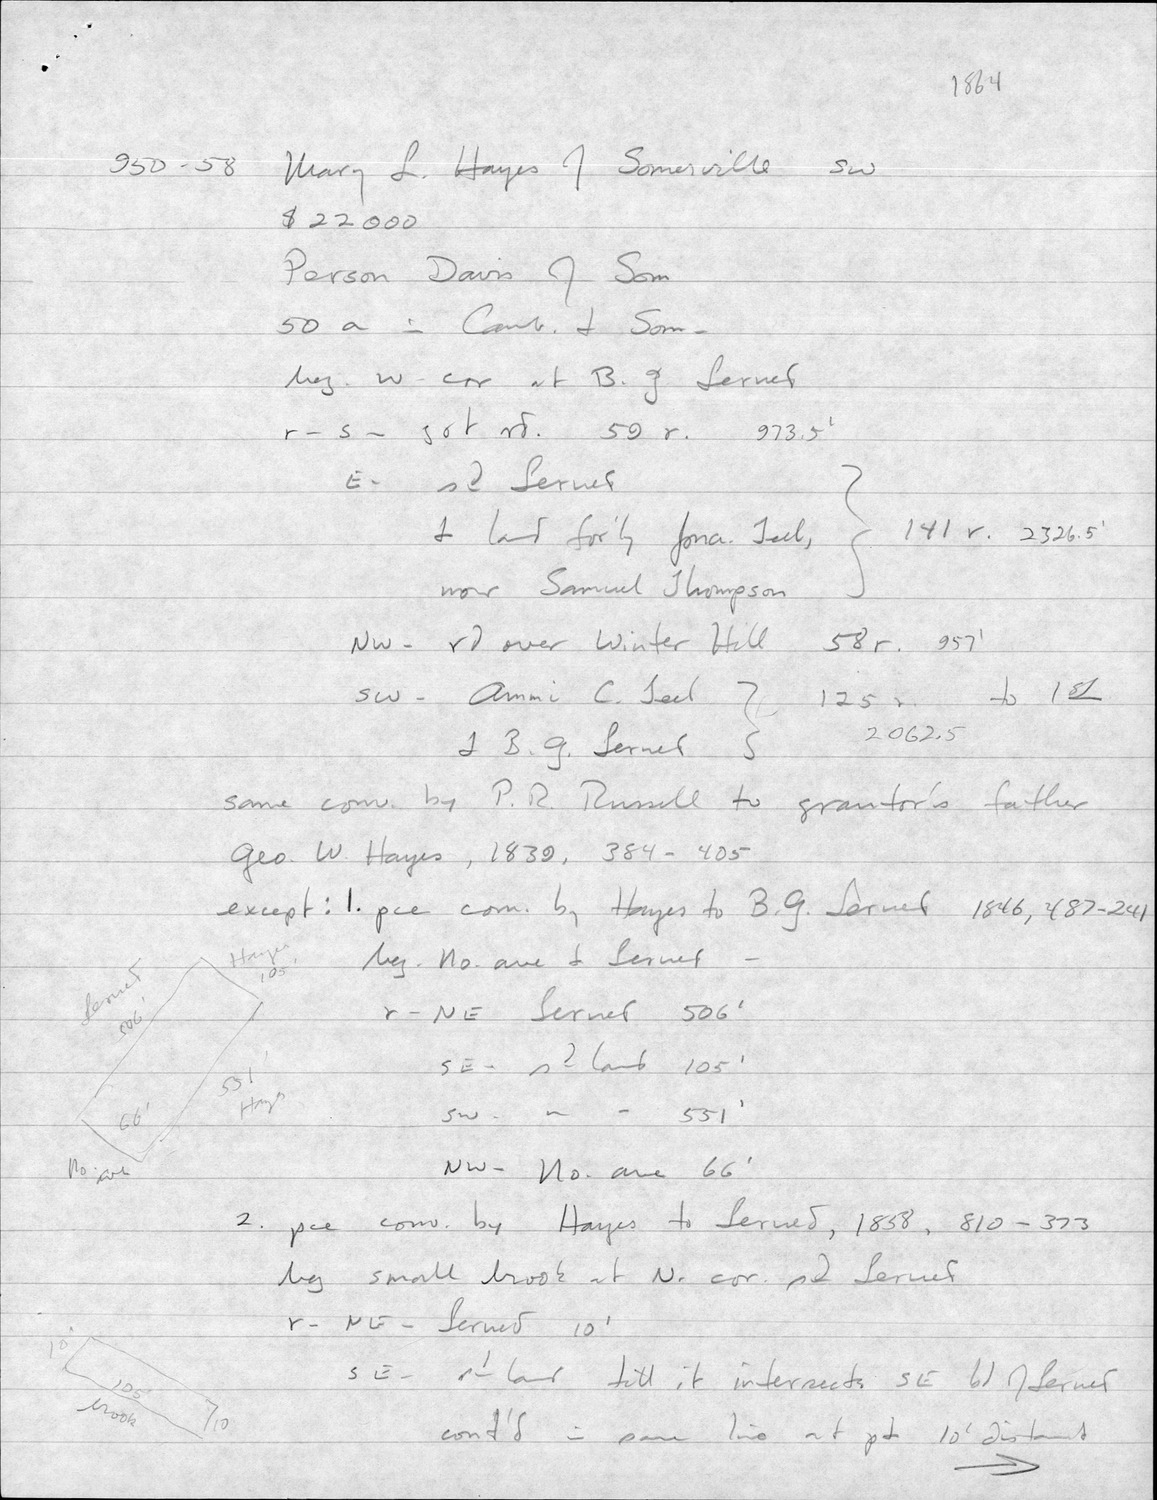 1864
950-58 Mary L. Hayes of Somerville sw
$22000
Person Davis of Som
50 a in Camb. & Som-
beg. w- cor at B. G Sernet
r- s- gt rd. 59 r. 973.5'
E- sd Sernet
& land for'ly Jona. Teel, 141 r. 2326.5'
now Samuel Thompson
NW- rd over Winter Hill 58 r. 957'
SW- Ammi C. Teel 125 r. to 1st
& B. G. Sernet 2062.5
same conv. by P. R. Russell to grantor's father
Geo. W. Hayes, 1839, 384-405
except: 1. pce conv. by Hayes to B.G. Sernet 1846, 487-241
beg. No. ave & Sernet -
r- NE Sernet 506'
SE- sd land 105'
SW- " " 551'
NW- No. ave 66'
Sernet 506'
Hayes 105'
551' Hayes
66'
No. ave
2. pce conv. by Hayes to Sernet, 1858, 810-373
beg small brook at N. cor. sd Sernet
r- NE- Sernet 10'
SE- sd land till it intersects SE bd of Sernet
cont'd in same line at pt 10' distant
10'
105'
brook
10